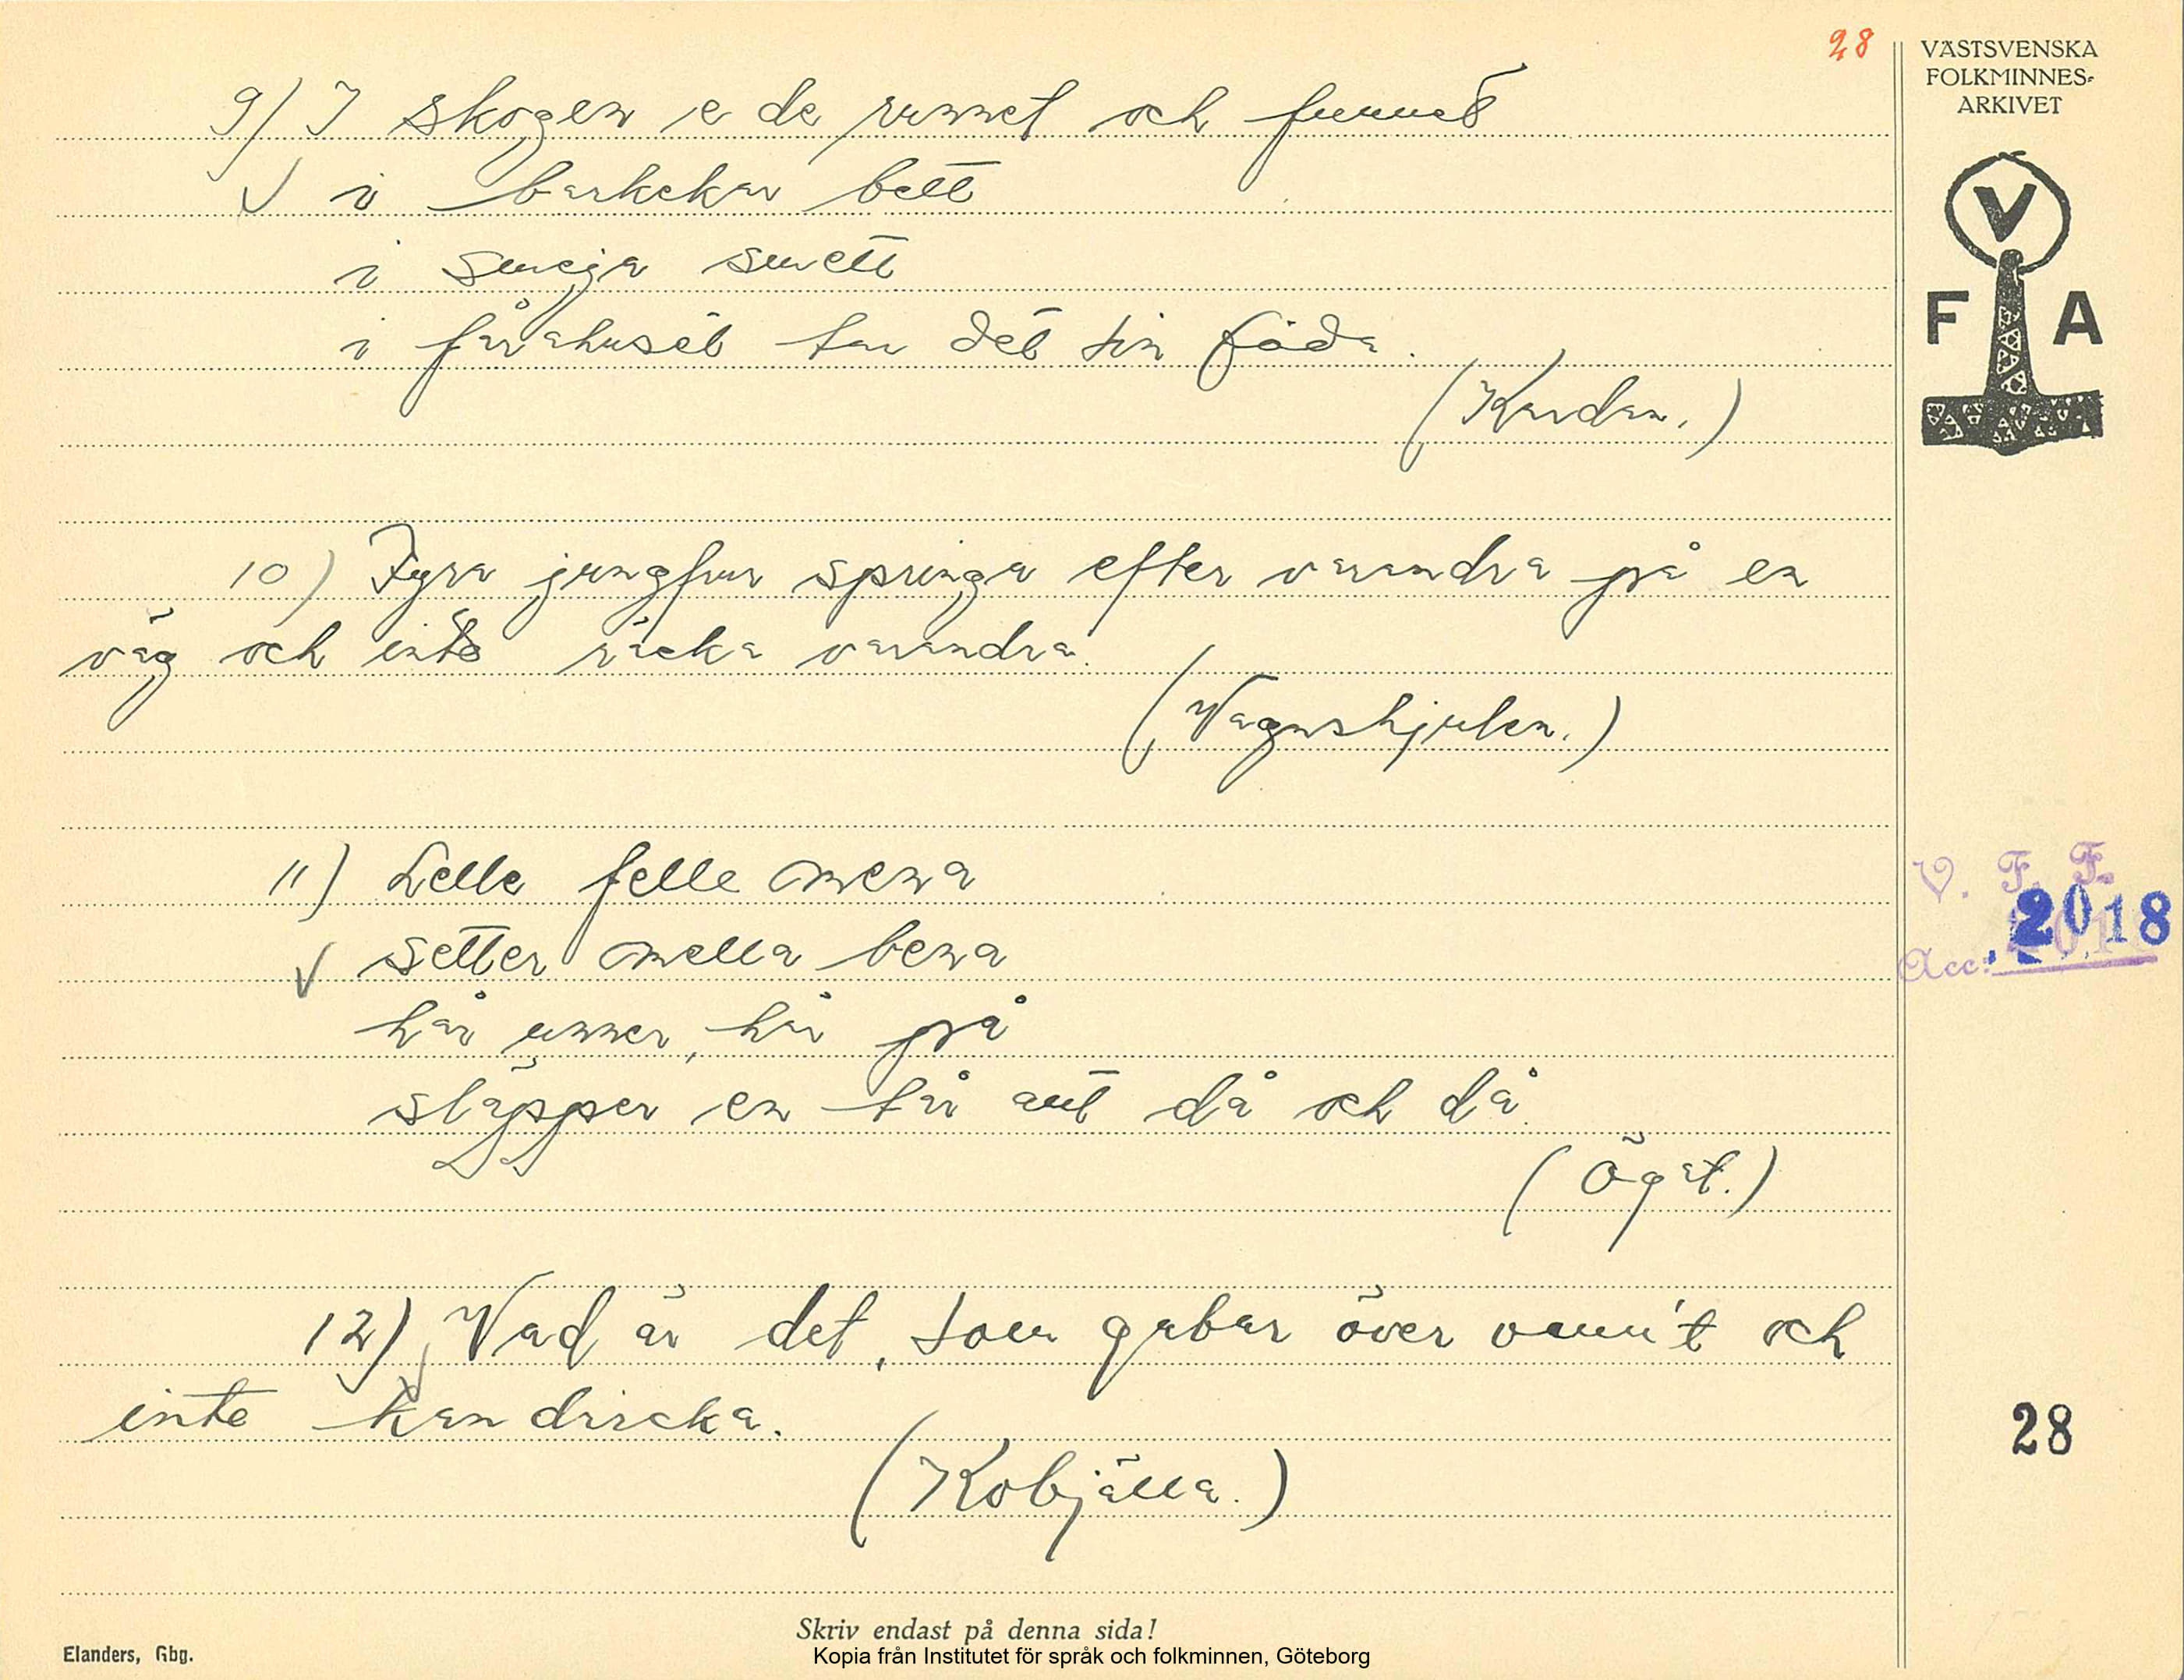 28
VÄSTSVENSKA
FOLKMINNES-
ARKIVET
V
F A
9) I skogen e de runnet och funnet
i barkekar bett
i smeja smett
i fårahuset tar det sin föda.
(Kardan.)
10) Fyra jungfrur springa efter varandra på en
väg och inte räcka varandra.
(Vagnshjulen.)
11) Lelle felle mena
setter mella bena
hår unner, hår på
släpper en tår aut då och då.
(Ögat.)
V. F. F.
2018
Acc:
12) Vad är det, som gabar över vann't och
inte kan dricka.
(Kobjälla.)
28
Skriv endast på denna sida!
Elanders, Gbg.
Kopia från Institutet för språk och folkminnen, Göteborg